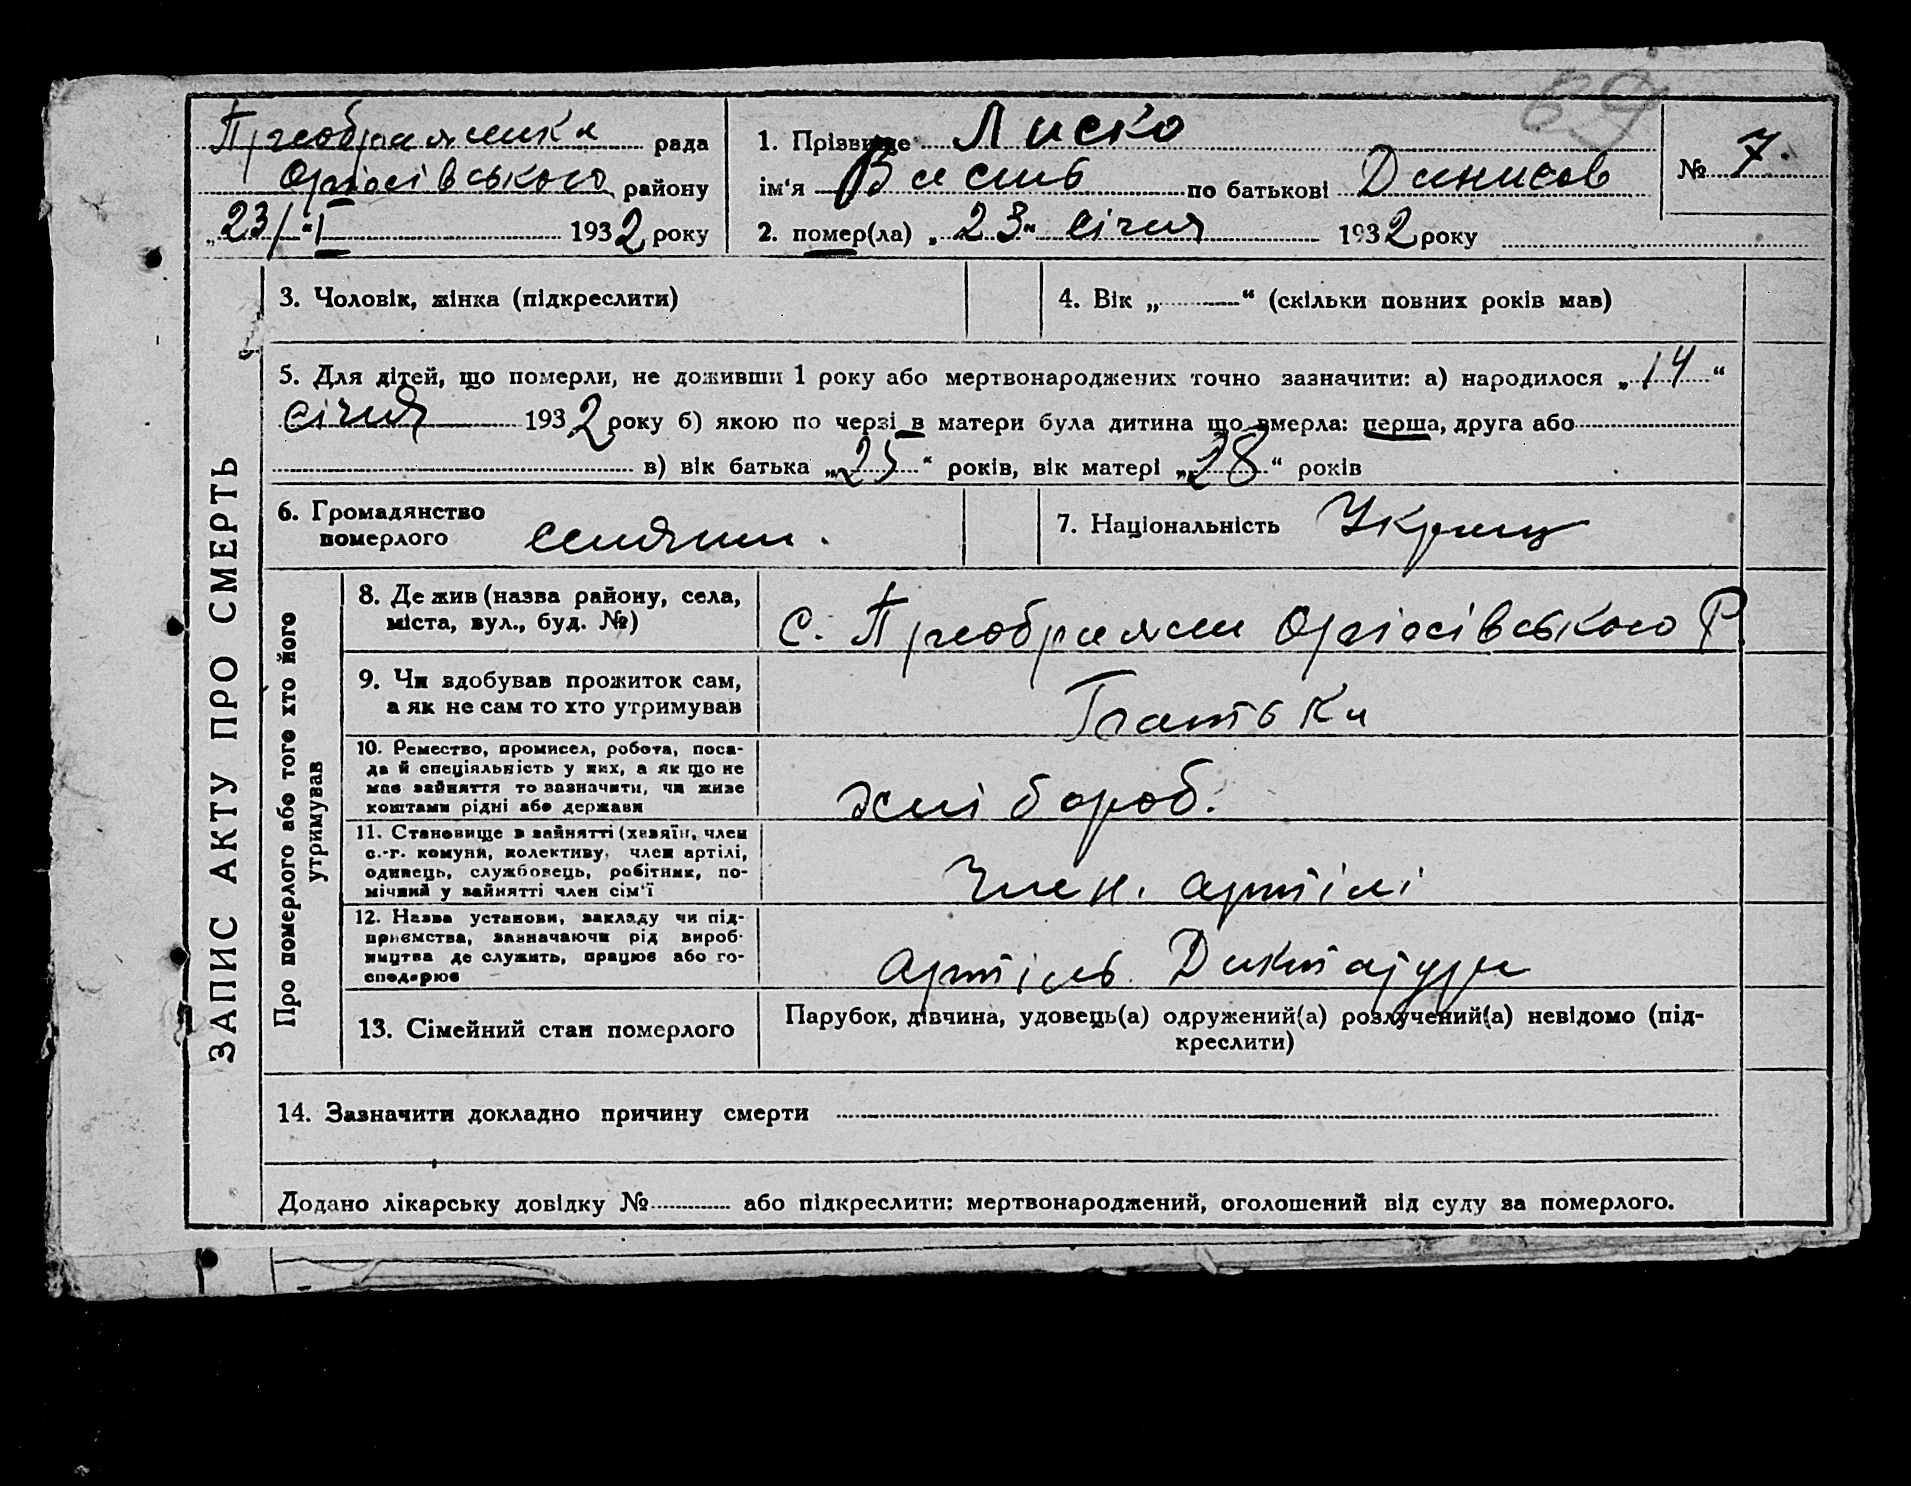 69
Преображенська рада
Оріхівського району
„23/“ I 1932 року
1. Прізвище Лиско
ім'я Василь по батькові Денисов
№ 7.
2. помер(ла) „23“ січня 1932 року
ЗАПИС АКТУ ПРО СМЕРТЬ
3. Чоловік, жінка (підкреслити)
4. Вік „ “ (скільки повних років мав)
5. Для дітей, що померли, не доживши 1 року або мертвонароджених точно зазначити: а) народилося „14“
січня 1932 року б) якою по черзі в матери була дитина що вмерла: перша, друга або
в) вік батька „25“ років, вік матері „28“ років
6. Громадянство
померлого
селянин.
7. Національність Украінц
Про померлого або того хто його
утримував
8. Де жив (назва району, села,
міста, вул., буд. №)
с. Преображен Оріхівського Р.
9. Чи здобував прожиток сам,
а як не сам то хто утримував
Батьки
10. Ремество, промисел, робота, поса-
да й спеціяльність у них, а як що не
має зайняття то зазначити, чи живе
коштами рідні або держави
хлібороб.
11. Становище в зайнятті (хазяїн, член
с.-г. комуни, колективу, член артілі,
одинець, службовець, робітник, по-
мічний у зайнятті член сім'ї
Член. артілі
12. Назва установи, закладу чи під-
приємства, зазначаючи рід вироб-
ництва де служить, працює або го-
сподарює
Артіль Диктатури
13. Сімейний стан померлого
Парубок, дівчина, удовець(а) одружений(а) розлучений(а) невідомо (під-
креслити)
14. Зазначити докладно причину смерти
Додано лікарську довідку № або підкреслити: мертвонароджений, оголошений від суду за померлого.